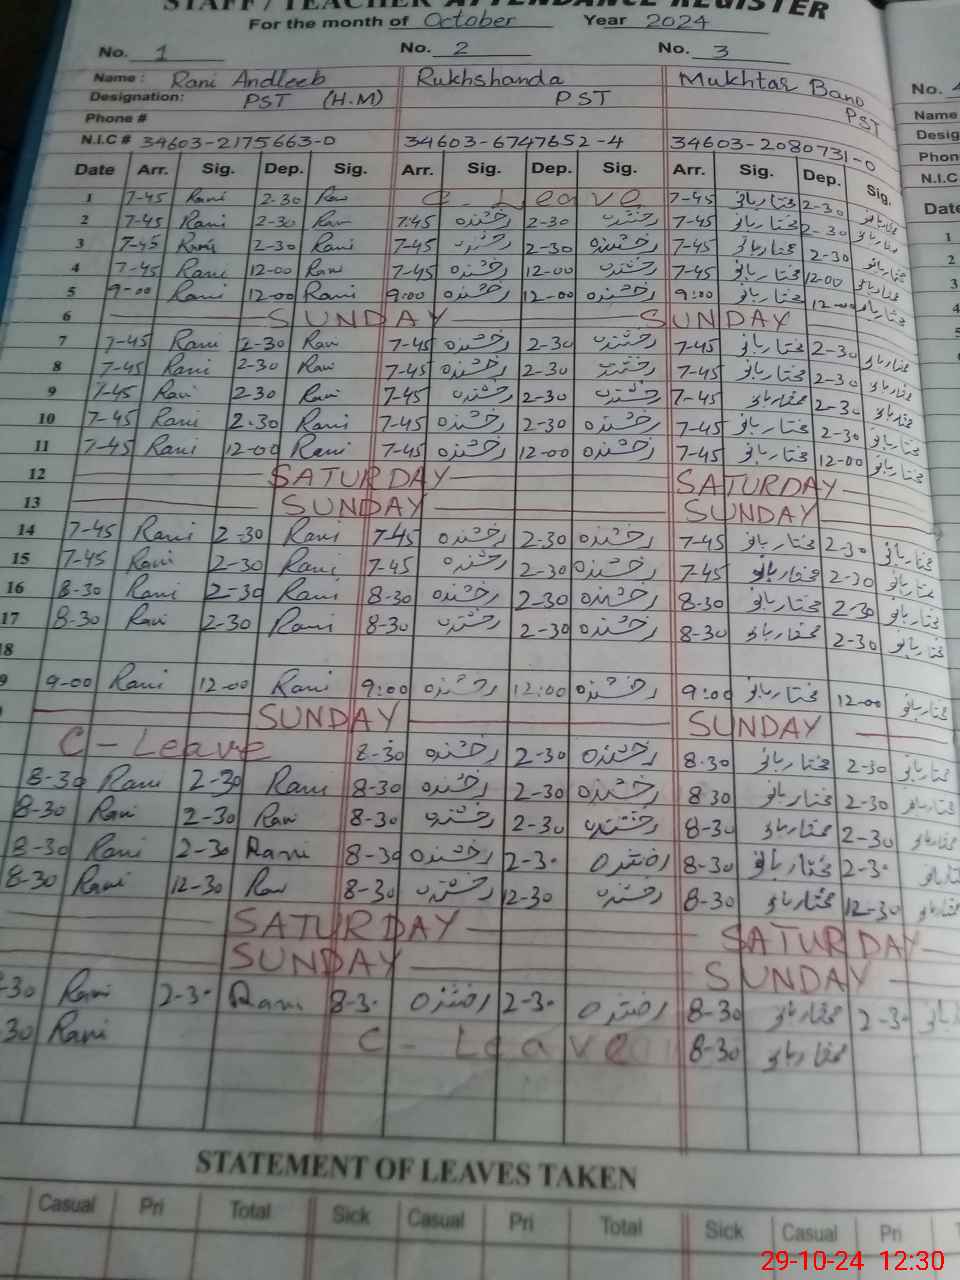 STAFF / TEACHER ATTENDANCE REGISTER
For the month of October Year 2024
No. 1 No. 2 No. 3 No.
Name : Rani Andleeb Rukhshanda Mukhtar Bano Name
Designation: PST (H.M) PST PST Desig
Phone # Phon
N.I.C # 34603-2175663-0 34603-6747652-4 34603-2080731-0 N.I.C
Date Arr. Sig. Dep. Sig. Arr. Sig. Dep. Sig. Arr. Sig. Dep. Sig. Date
1 7-45 Rani 2-30 Rani C-Leave 7-45 مختار بانو 2-30 مختار بانو 1
2 7-45 Rani 2-30 Rani 7:45 رخشندہ 2-30 رخشندہ 7-45 مختار بانو 2-30 مختار بانو 2
3 7-45 Rani 2-30 Rani 7-45 رخشندہ 2-30 رخشندہ 7-45 مختار بانو 2-30 مختار بانو 3
4 7-45 Rani 12-00 Rani 7-45 رخشندہ 12-00 رخشندہ 7-45 مختار بانو 12-00 مختار بانو 4
5 9-00 Rani 12-00 Rani 9:00 رخشندہ 12-00 رخشندہ 9:00 مختار بانو 12-00 مختار بانو
6 SUNDAY SUNDAY
7 7-45 Rani 2-30 Rani 7-45 رخشندہ 2-30 رخشندہ 7-45 مختار بانو 2-30 مختار بانو
8 7-45 Rani 2-30 Rani 7-45 رخشندہ 2-30 رخشندہ 7-45 مختار بانو 2-30 مختار بانو
9 7-45 Rani 2-30 Rani 7-45 رخشندہ 2-30 رخشندہ 7-45 مختار بانو 2-30 مختار بانو
10 7-45 Rani 2-30 Rani 7-45 رخشندہ 2-30 رخشندہ 7-45 مختار بانو 2-30 مختار بانو
11 7-45 Rani 12-00 Rani 7-45 رخشندہ 12-00 رخشندہ 7-45 مختار بانو 12-00 مختار بانو
12 SATURDAY SATURDAY
13 SUNDAY SUNDAY
14 7-45 Rani 2-30 Rani 7-45 رخشندہ 2-30 رخشندہ 7-45 مختار بانو 2-30 مختار بانو
15 7-45 Rani 2-30 Rani 7-45 رخشندہ 2-30 رخشندہ 7-45 مختار بانو 2-30 مختار بانو
16 8-30 Rani 2-30 Rani 8-30 رخشندہ 2-30 رخشندہ 8-30 مختار بانو 2-30 مختار بانو
17 8-30 Rani 2-30 Rani 8-30 رخشندہ 2-30 رخشندہ 8-30 مختار بانو 2-30 مختار بانو
18
9 9-00 Rani 12-00 Rani 9:00 رخشندہ 12:00 رخشندہ 9:00 مختار بانو 12-00 مختار بانو
SUNDAY SUNDAY
C-Leave 8-30 رخشندہ 2-30 رخشندہ 8-30 مختار بانو 2-30 مختار بانو
8-30 Rani 2-30 Rani 8-30 رخشندہ 2-30 رخشندہ 8 30 مختار بانو 2-30 مختار بانو
8-30 Rani 2-30 Rani 8-30 رخشندہ 2-30 رخشندہ 8-30 مختار بانو 2-30 مختار بانو
8-30 Rani 2-30 Rani 8-30 رخشندہ 2-30 رخشندہ 8-30 مختار بانو 2-30 مختار بانو
8-30 Rani 12-30 Rani 8-30 رخشندہ 12-30 رخشندہ 8-30 مختار بانو 12-30 مختار بانو
SATURDAY SATURDAY
SUNDAY SUNDAY
-30 Rani 2-30 Rani 8-30 رخشندہ 2-30 رخشندہ 8-30 مختار بانو 2-30
30 Rani C-Leave 8-30 مختار بانو
STATEMENT OF LEAVES TAKEN
Casual Pri Total Sick Casual Pri Total Sick Casual Pri
29-10-24 12:30